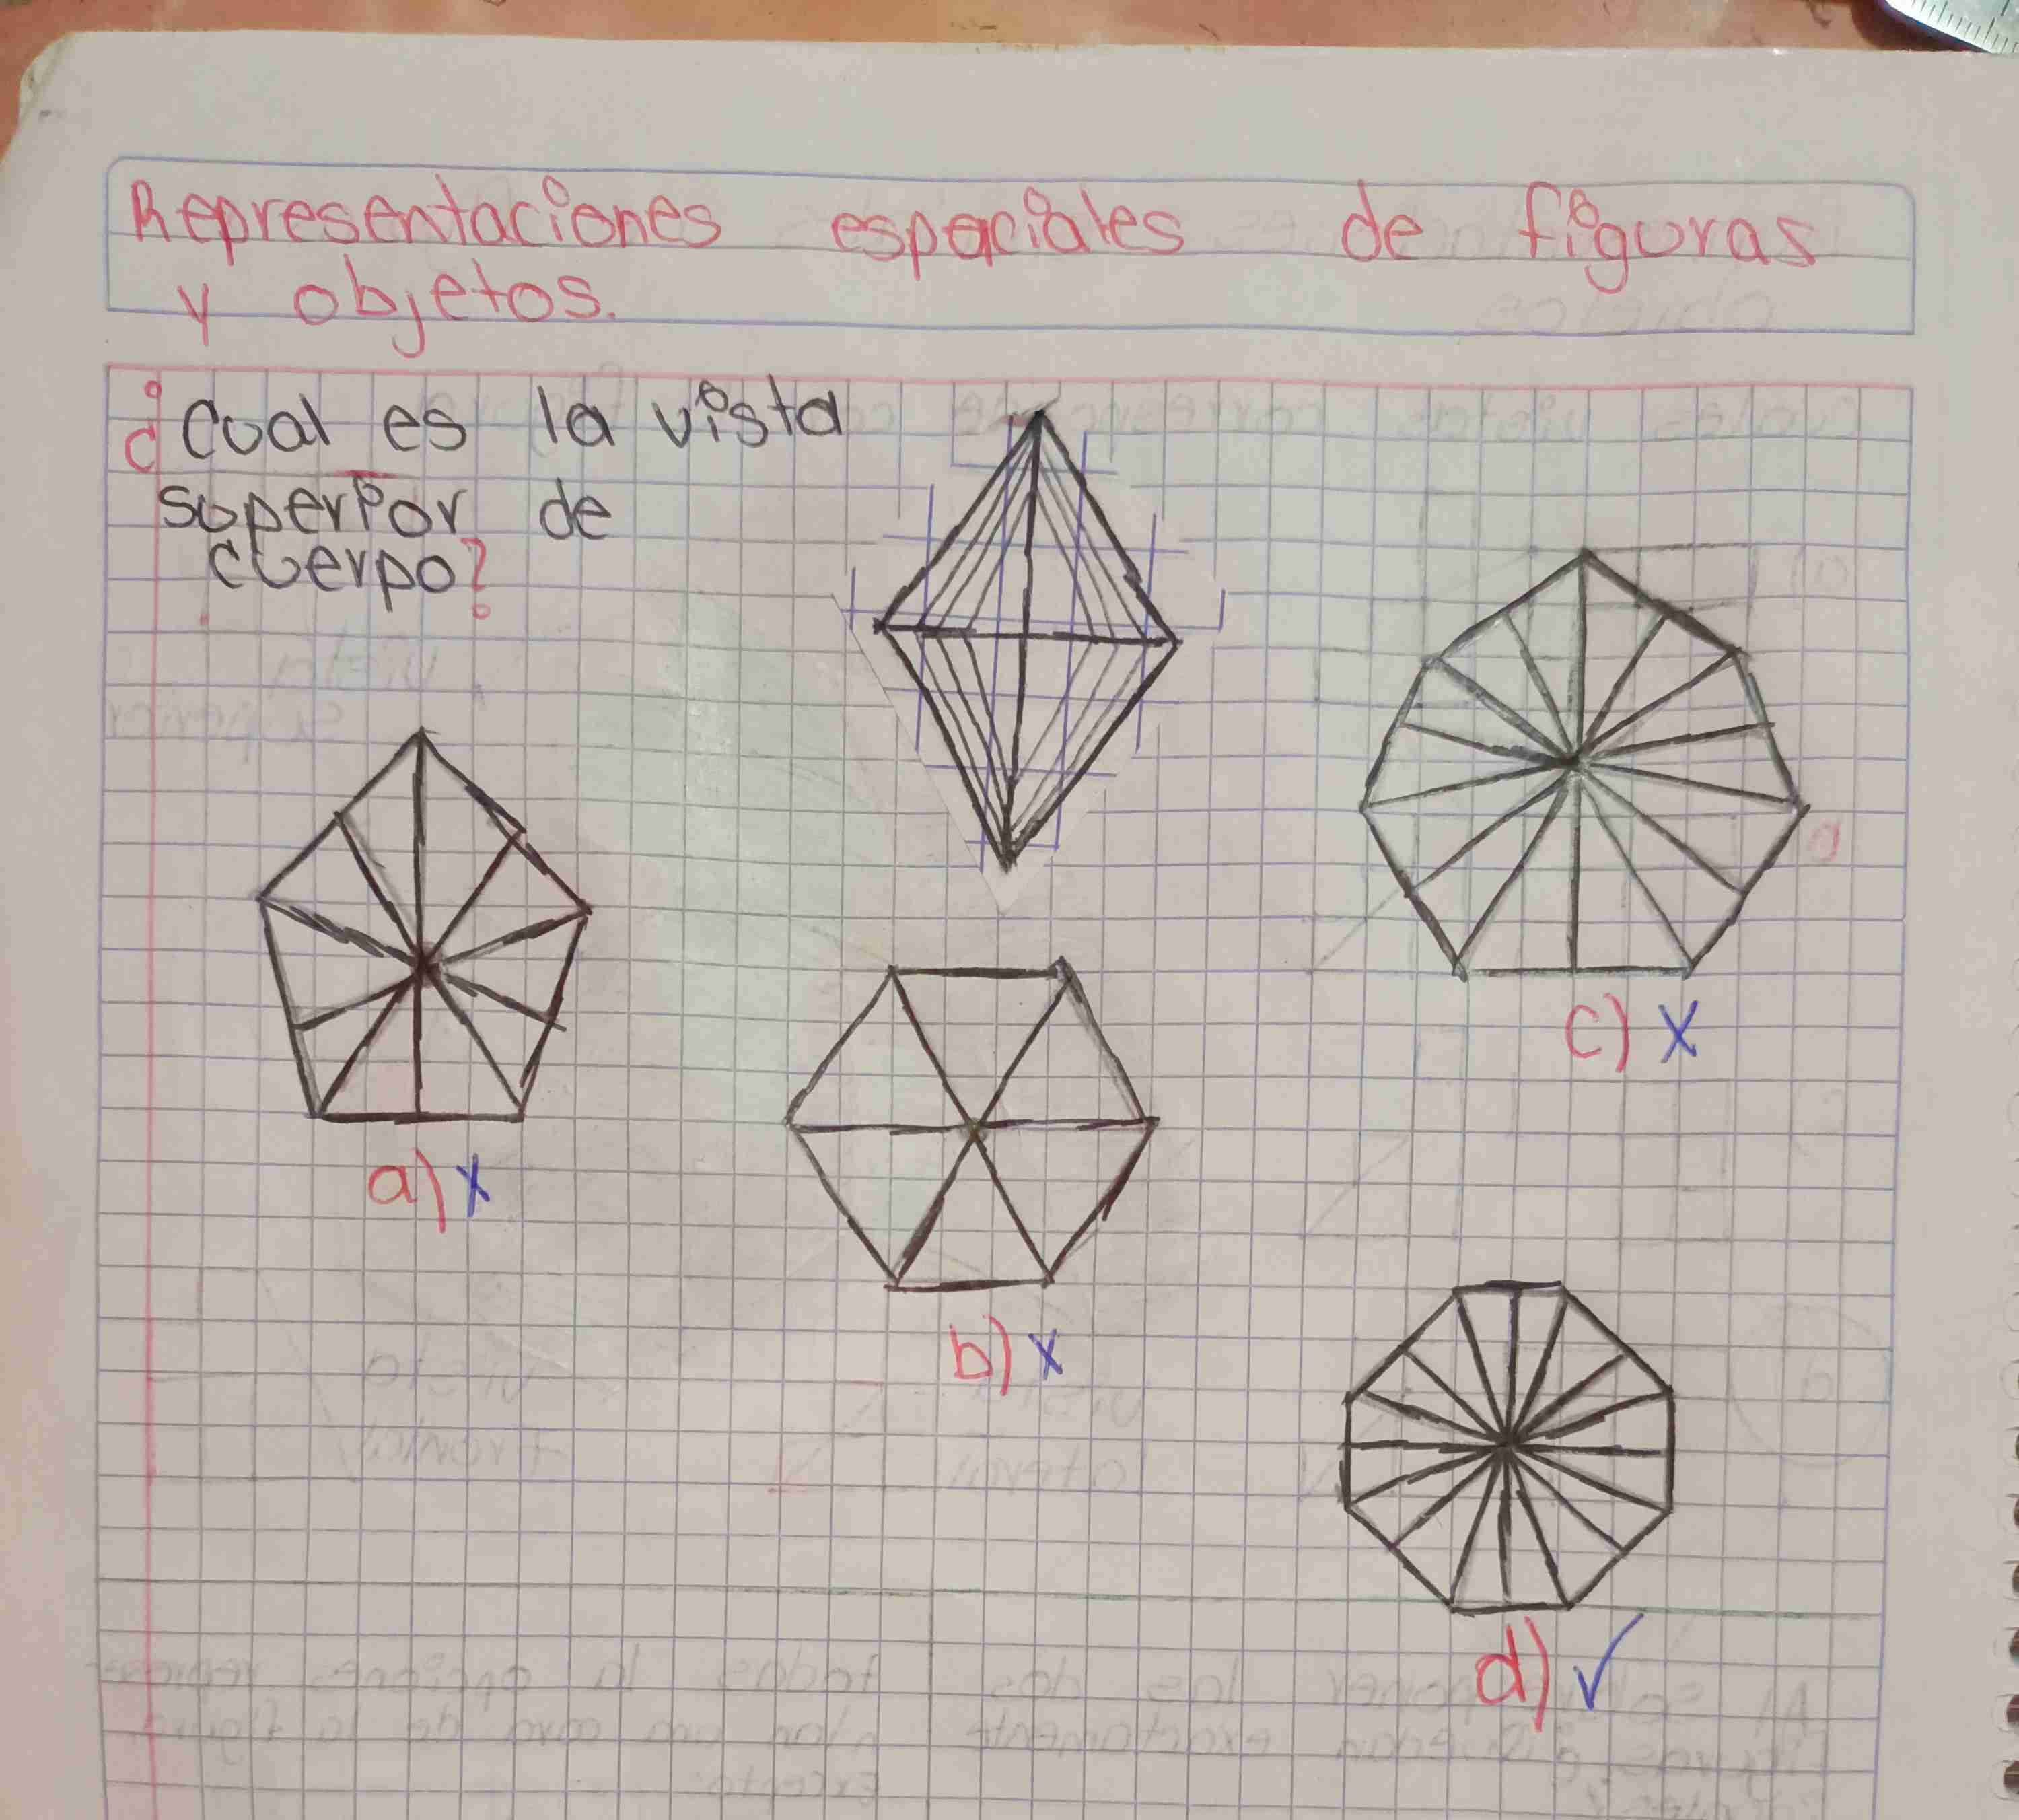 Representaciones espaciales de figuras
y objetos.
¿Cual es la vista
superior de
cuerpo?
a) x
b) x
c) x
d) ✓